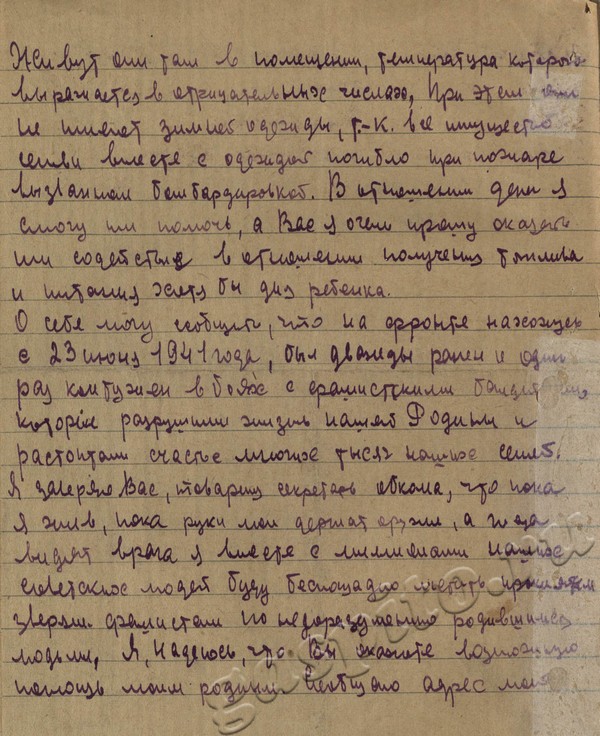 Живут они там в помещении, температура которого
выражается в отрицательных числах, При этом они
не имеют зимней одежды, т.-к. все имущество
семьи вместе с одеждой погибло при пожаре
вызванном бомбардировкой. В отношении денег я
смогу им помочь, а Вас я очень прошу оказать
им содействие в отношении получения топлива
и питания хотя бы для ребенка.
О себе могу сообщить, что на фронте нахожусь
с 23 июня 1941 года, был дважды ранен и один
раз контужен в боях с фашистскими бандитами
которые разрушили жизнь нашей Родины и
растоптали счастье многих тысяч наших семей.
Я заверяю Вас, товарищ секретарь обкома, что пока
я жив, пока руки мои держат оружие, а глаза
видят врага я вместе с миллионами наших
советских людей буду беспощадно мстить проклятым
зверям фашистам по недоразумению родившимся
людьми, Я, надеюсь, что Вы окажете возможную
помощь моим родным. Сообщаю адрес моей